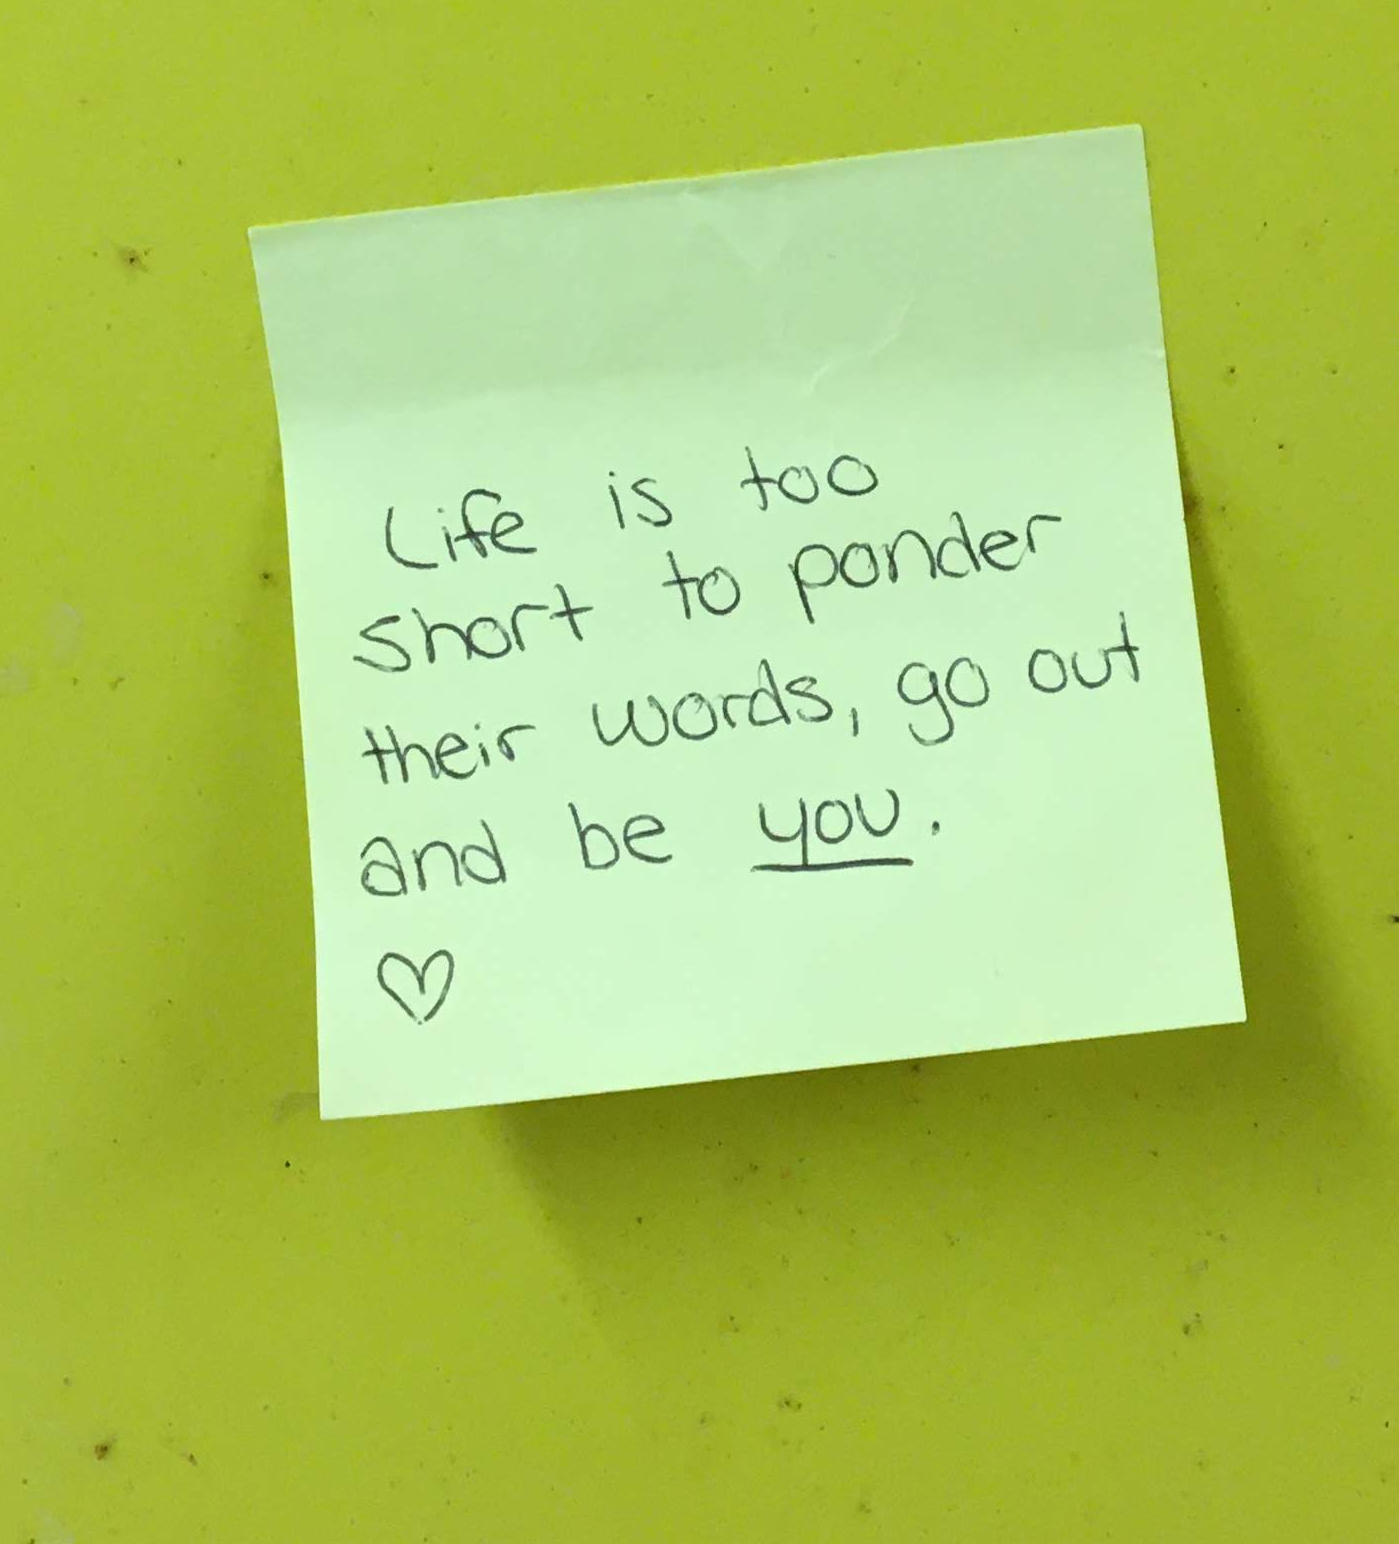 Life is too
short to ponder
their words, go out
and be you.
♡